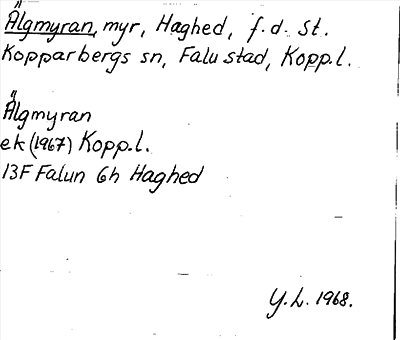 Älgmyran, myr, Haghed, f.d. St.
Kopparbergs sn, Falu stad, Kopp.l.
Älgmyran
ek (1967) Kopp.l.
13F Falun 6h Haghed
Y.L. 1968.